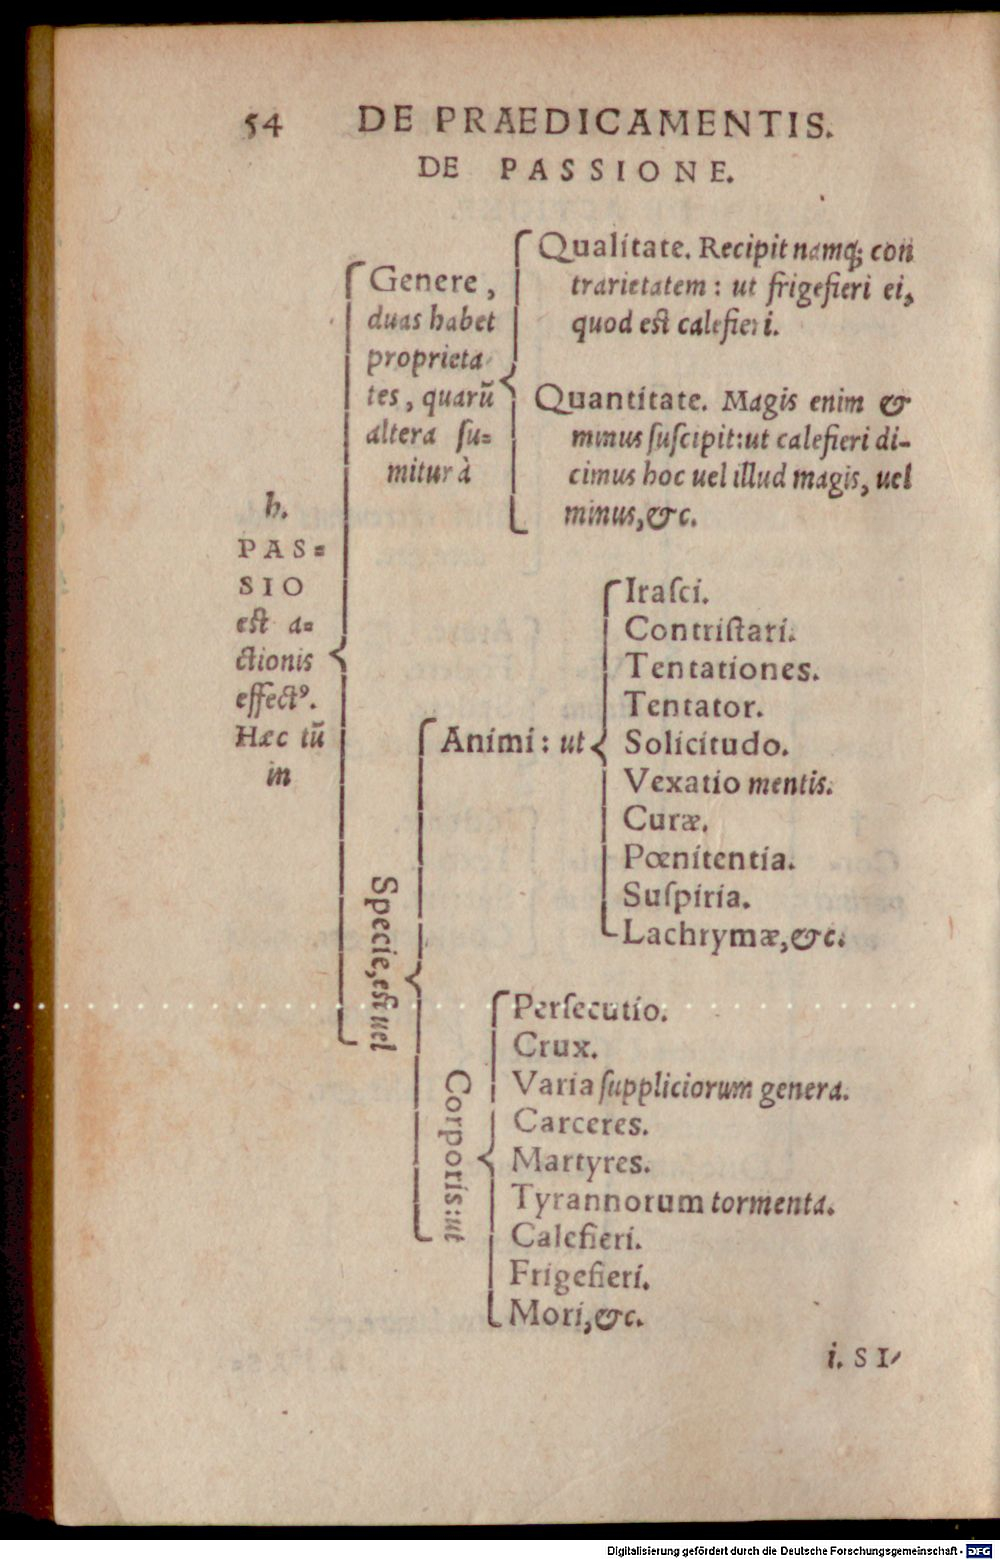 54 DE PRAEDICAMENTIS.
DE PASSIONE.
h.
PAS=
SIO
est a=
ctionis
effectꝰ.
Hæc tũ
in
Genere,
duas habet
proprieta
tes, quarũ
altera ſu=
mitur à
Qualitate. Recipit namq; con
trarietatem: ut frigefieri ei,
quod est calefieri.
Quantitate. Magis enim &
minus ſuſcipit: ut calefieri di-
cimus hoc uel illud magis, uel
minus, &c.
Specie, est uel
Animi: ut
Iraſci.
Contriſtari.
Tentationes.
Tentator.
Solicitudo.
Vexatio mentis.
Curæ.
Pœnitentia.
Suſpiria.
Lachrymæ, &c.
Corporis: ut
Perſecutio.
Crux.
Varia ſuppliciorum genera.
Carceres.
Martyres.
Tyrannorum tormenta.
Calefieri.
Frigefieri.
Mori, &c.
i. SI-
Digitalisierung gefördert durch die Deutsche Forschungsgemeinschaft - DFG